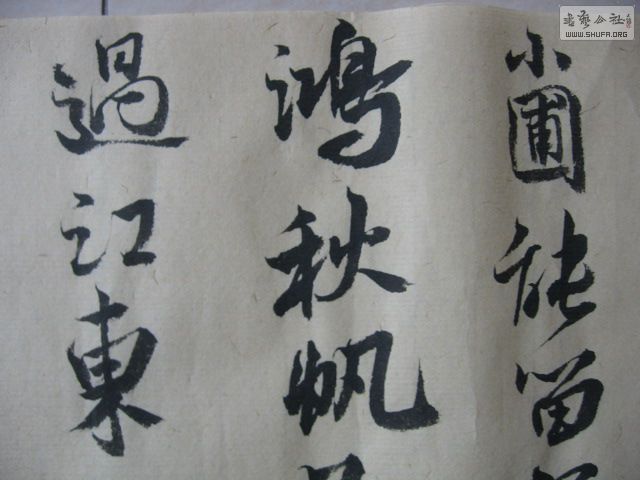 小圃能留
鴻秋帆
過江東
書藝公社
WWW.SHUFA.ORG